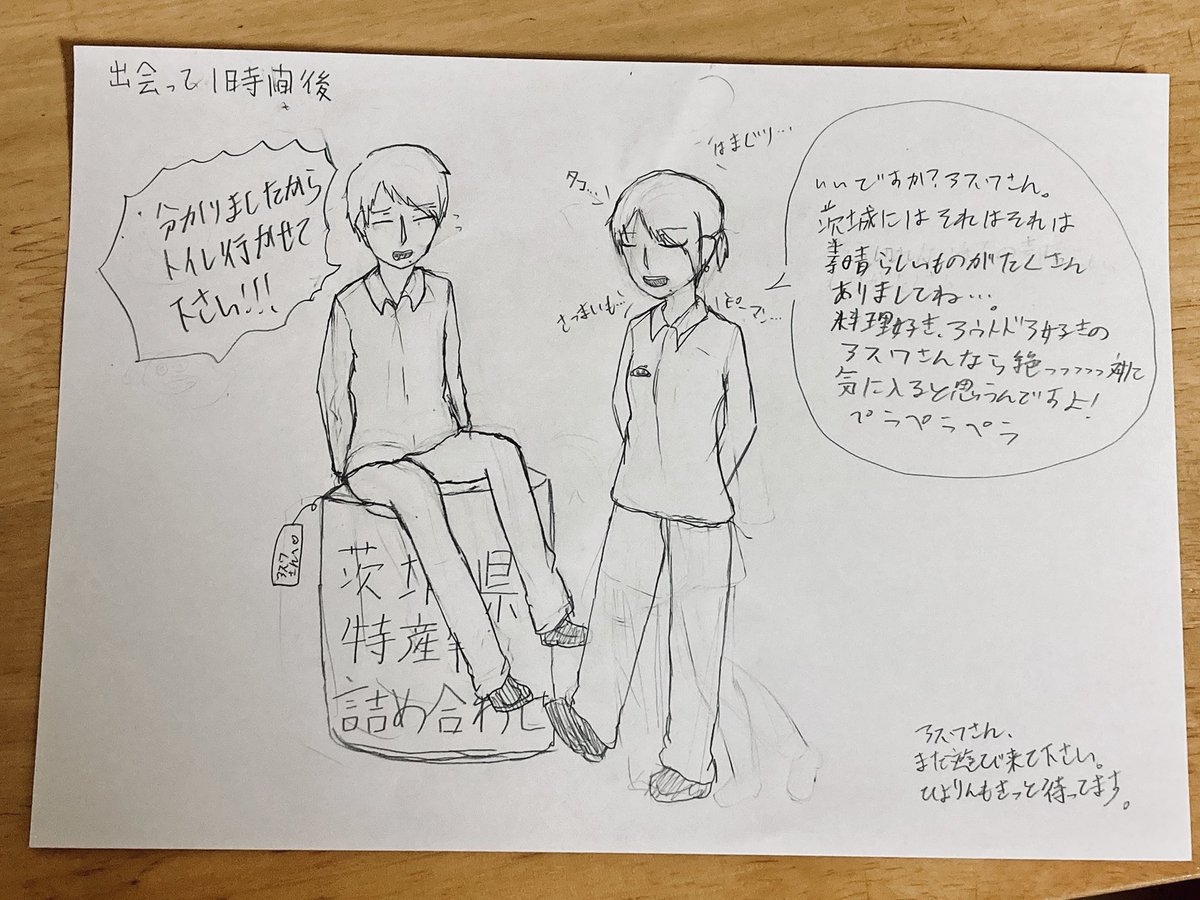 出会って1時間後
分かりましたから
トイレ行かせて
下さい!!!
タコ…
はまぐり…
さつまいも…
ピーマン…
いいですか?アスワさん。
茨城にはそれはそれは
素晴らしいものがたくさん
ありましてね…。
料理好き、アウトドア好きの
アスワさんなら絶っっっっっ対に
気に入ると思うんですよ!
ペラペラペラ
アスワ
さんへ
茨城県
特産
詰め合わせ
アスワさん、
また遊びに来て下さい。
ひよりんもきっと待ってます。